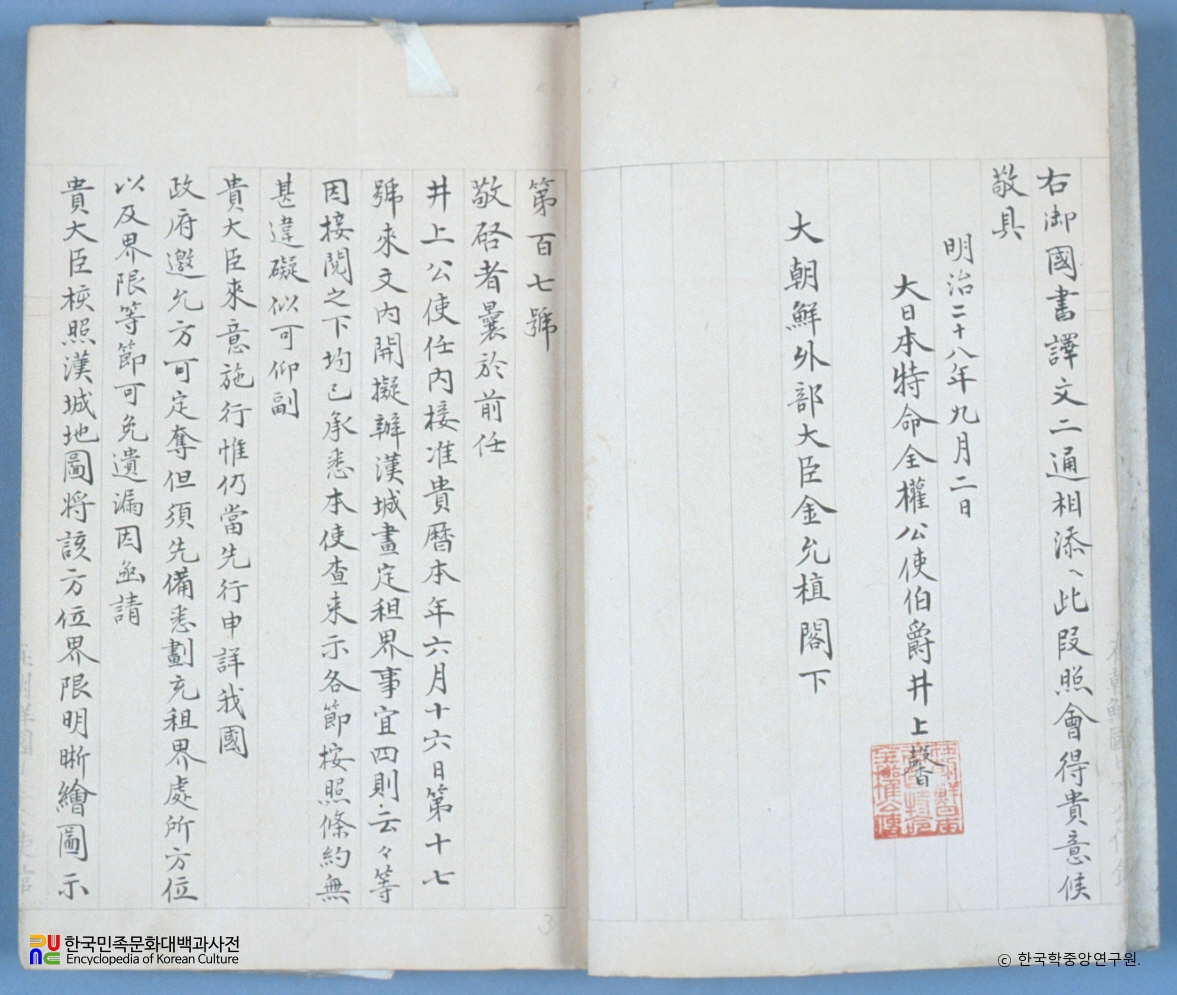 右御國書譯文二通相添ヘ此段照會得貴意候
敬具
明治二十八年九月二日
大日本特命全權公使伯爵井上馨
大朝鮮外部大臣金允植閣下
第百七號
敬啓者曩於前任
井上公使任內接准貴曆本年六月十六日第十七
號來文內開擬辦漢城畫定租界事宜四則云々等
因接閱之下均已承悉本使查來示各節按照條約無
甚違礙似可仰副
貴大臣來意施行惟仍當先行申詳我國
政府邀允方可定奪但須先備悉劃充租界處所方位
以及界限等節可免遺漏因亟請
貴大臣核照漢城地圖將該方位界限明晰繪圖示
한국민족문화대백과사전
Encyclopedia of Korean Culture
© 한국학중앙연구원.